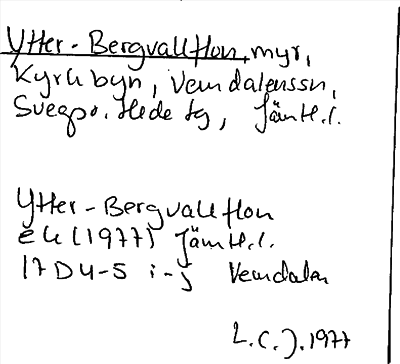 Ytter-Bergvallflon, myr,
Kyrkbyn, Vemdalens sn,
Svegs o. Hede tg, Jämtl. l.
Ytter-Bergvallflon
ek (1977) Jämtl. l.
17D 4-5 i-j Vemdalen
L.C.J. 1977